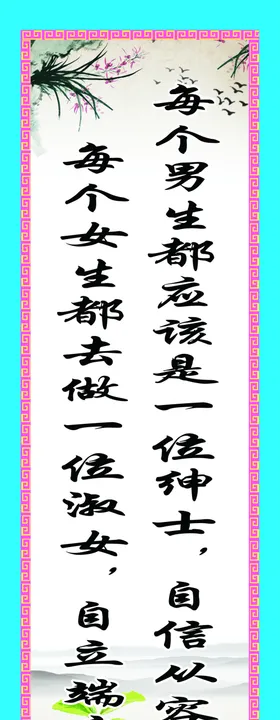 每个男生都应该是一位绅士，自信从容
每个女生都去做一位淑女，自立端